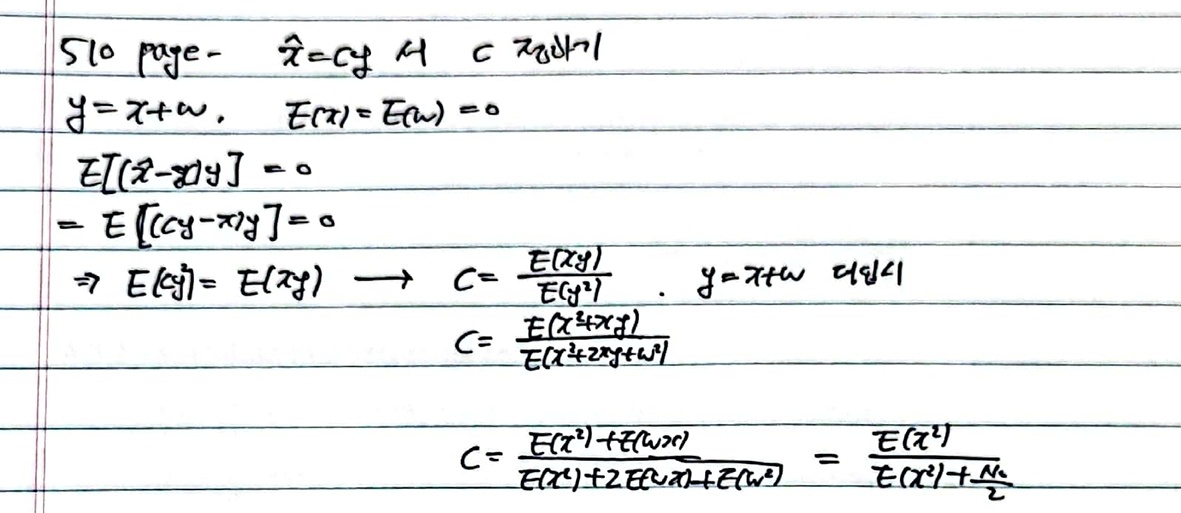 510 page- x̂=cy 서 c 정하기
y=x+w. E(x)=E(w)=0
E[(x̂-x)y]=0
= E[(cy-x)y]=0
⇒ E(cy²)= E(xy) → C= E(xy)/E(y²) . y=x+w 대입시
C= E(x²+xy)/E(x²+2xy+w²)
C= (E(x²)+E(wx))/(E(x²)+2E(wx)+E(w²)) = E(x²)/(E(x²)+N₀/2)